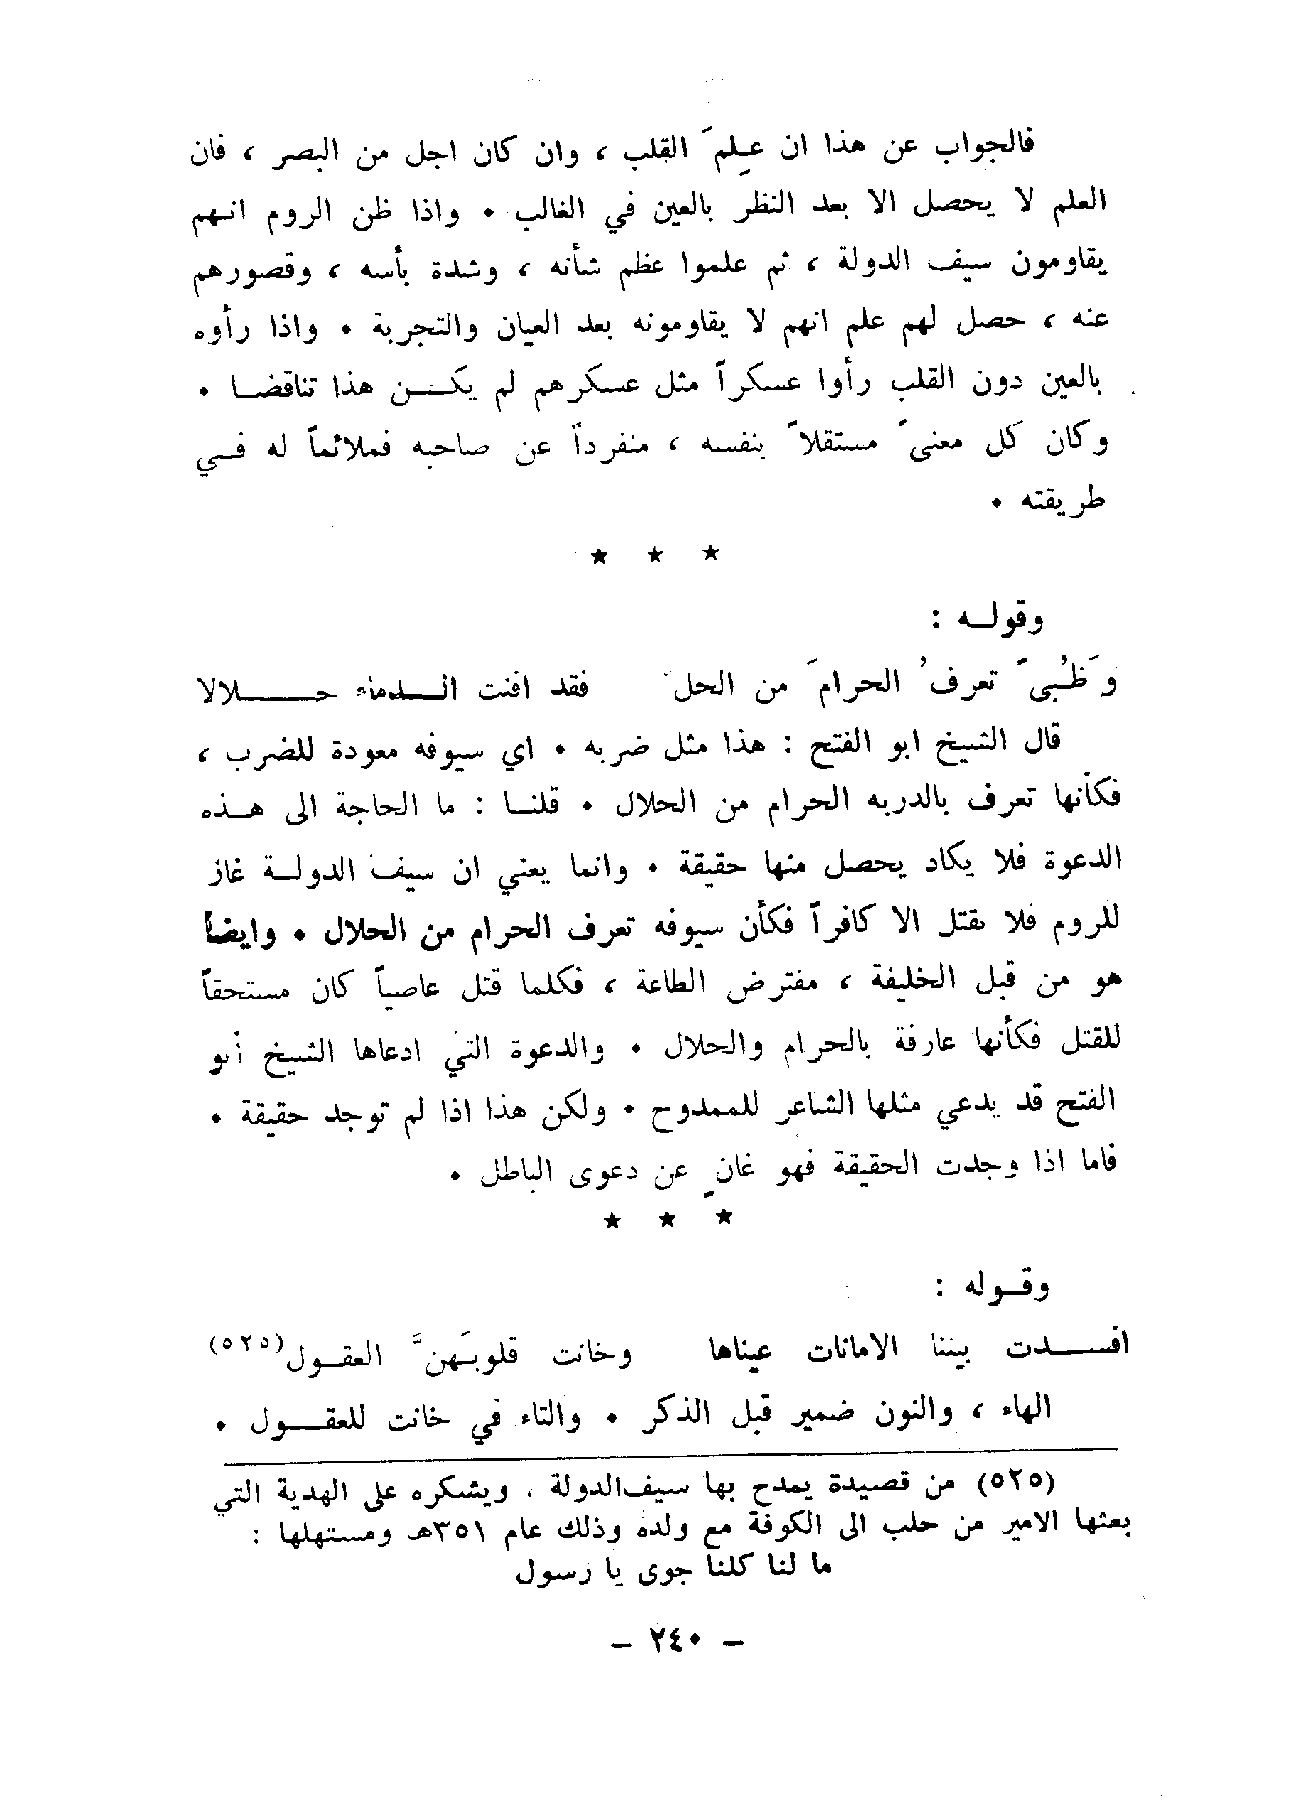 فالجواب عن هذا ان عِلمَ القلب ، وان كان اجل من البصر ، فان
العلم لا يحصل الا بعد النظر بالعين في الغالب • واذا ظن الروم انهم
يقاومون سيف الدولة ، ثم علموا عظم شأنه ، وشدة بأسه ، وقصورهم
عنه ، حصل لهم علم انهم لا يقاومونه بعد العيان والتجربة • واذا رأوه
بالعين دون القلب رأوا عسكراً مثل عسكرهم لم يكن هذا تناقضا •
وكان كل معنىً مستقلاً بنفسه ، منفرداً عن صاحبه فملائماً له في
طريقته •
★ ★ ★
وقوله :
وَظُبىً تعرفُ الحرامَ من الحل فقد افنت الدماء حلالا
قال الشيخ ابو الفتح : هذا مثل ضربه • اي سيوفه معودة للضرب ،
فكأنها تعرف بالدربه الحرام من الحلال • قلنا : ما الحاجة الى هذه
الدعوة فلا يكاد يحصل منها حقيقة • وانما يعني ان سيف الدولة غاز
للروم فلا يقتل الا كافراً فكأن سيوفه تعرف الحرام من الحلال • وايضاً
هو من قبل الخليفة ، مفترض الطاعة ، فكلما قتل عاصياً كان مستحقاً
للقتل فكأنها عارفة بالحرام والحلال • والدعوة التي ادعاها الشيخ أبو
الفتح قد يدعي مثلها الشاعر للممدوح • ولكن هذا اذا لم توجد حقيقة •
فاما اذا وجدت الحقيقة فهو غانٍ عن دعوى الباطل •
★ ★ ★
وقوله :
افسدت بيننا الامانات عيناها وخانت قلوبَهنَّ العقول(٥٢٥)
الهاء ، والنون ضمير قبل الذكر • والتاء في خانت للعقول •
(٥٢٥) من قصيدة يمدح بها سيف‌الدولة ، ويشكره على الهدية التي
بعثها الامير من حلب الى الكوفة مع ولده وذلك عام ٣٥١هـ ومستهلها :
ما لنا كلنا جوى يا رسول
– ٢٤٠ –